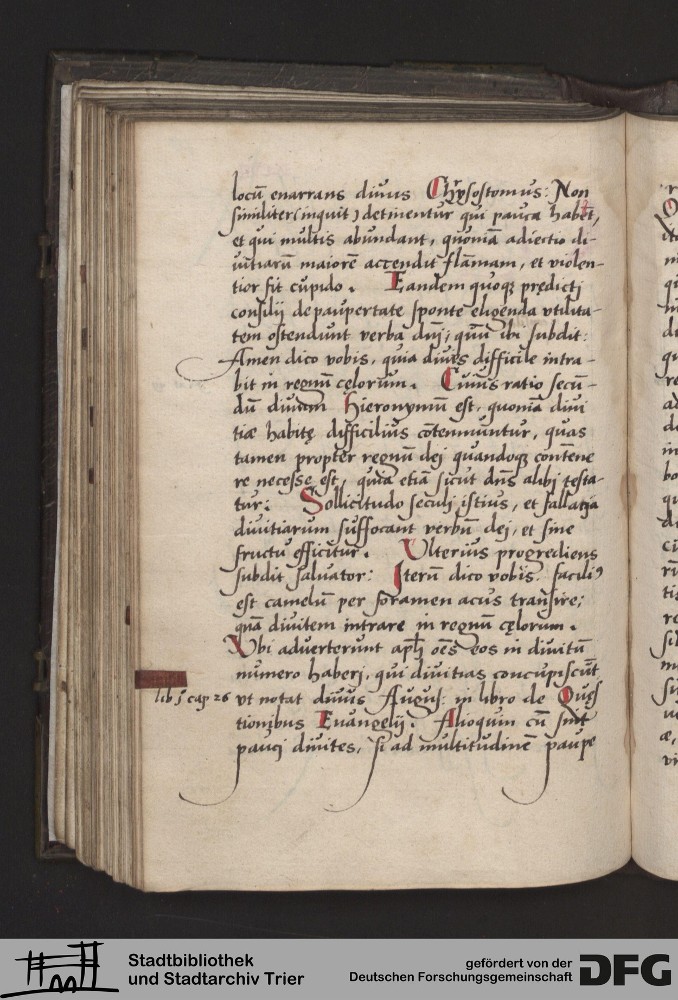 locū enarrans diuus Chrysostomus: Non
similiter (inquit) detinentur qui pauca habēt,
et qui multis abundant, quoniā adiectio di-
uitiarū maiorē accendit flāmam, et violen-
tior fit cupido. Eandem quoqꝫ prędictj
consilij de paupertate sponte eligenda vtilita-
tem ostendunt verba dnj, qūū ibi subdit:
Amen dico vobis, quia diues difficile intra-
bit in regnū cęlorum. Cuius ratio secū-
dū diuum Hieronymū est, quoniā diui
tiæ habitę difficilius cōtemnuntur, quas
tamen propter regnū dej quandoqꝫ contēne
re necesse est, quia etiā sicut dn̄s alibj testa-
tur: Sollicitudo seculj istius, et fallatia
diuitiarum suffocant verbū dej, et sine
fructu efficitur. Vlterius progrediens
subdit saluator: Iterū dico vobis. facili9
est camelū per foramen acus transire,
quā diuitem intrare in regnū cęlorum.
Vbi aduerterunt apl̄i oēs eos in diuitū
numero haberj, qui diuitias concupiscūt
lib j cap 26 vt notat diuus Augus: in libro de Quęs
tionibus Euangelij. Alioquin cū sint
paucj diuites, si ad multitudinē paupe
Stadtbibliothek
und Stadtarchiv Trier
gefördert von der
Deutschen Forschungsgemeinschaft
DFG